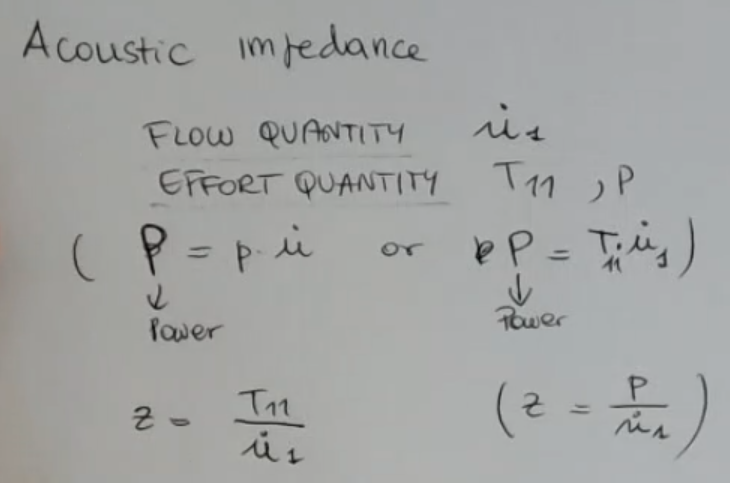 Acoustic impedance
FLOW QUANTITY u̇₁
EFFORT QUANTITY T₁₁ , p
( P = p · u̇ or P = T₁₁ · u̇₁ )
↓ ↓
Power Power
z = T₁₁ / u̇₁ ( z = p / u̇₁ )